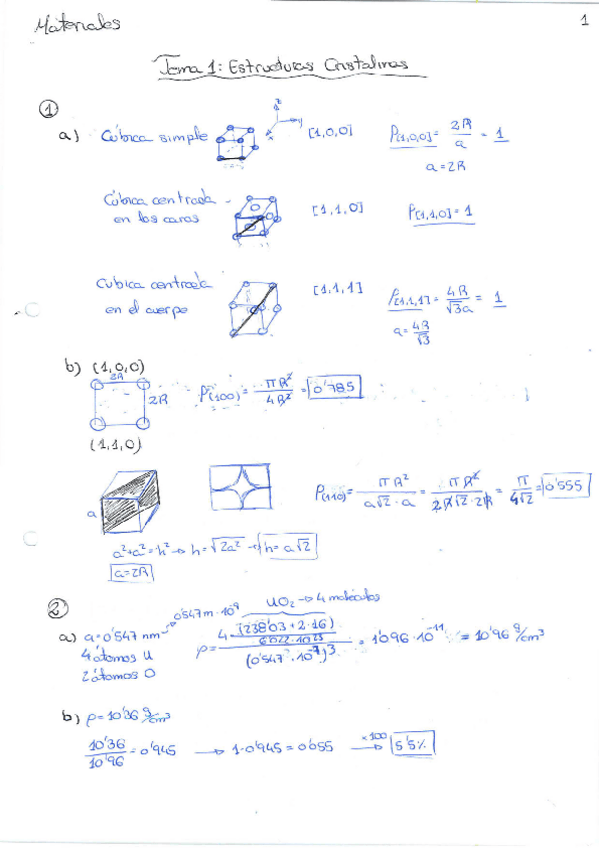 Materiales 1
Tema 1: Estructuras Cristalinas
①
a) Cúbica simple z y x [1,0,0] P[1,0,0] = 2R/a = 1
a = 2R
Cúbica centrada en las caras [1,1,0] P[1,1,0] = 1
Cubica centrada en el cuerpo [1,1,1] P[1,1,1] = 4R/√3a = 1
a = 4R/√3
b) (1,0,0)
2R
2R P(100) = πR²/4R² = 0'785
(1,1,0)
a P(110) = πR²/a√2·a = πR²/2R√2·2R = π/4√2 = 0'555
a²+a²=h² → h=√2a² → h=a√2
a=2R
②
UO₂ → 4 moléculas
0'547m·10⁻⁹
a) a=0'547 nm
4 átomos U
2 átomos O
ρ = 4·(238'03+2·16)/6'022·10²³/(0'547·10⁻⁷)³ = 1'096·10⁻¹¹ = 10'96 g/cm³
b) ρ=10'36 g/cm³
10'36/10'96 = 0'945 → 1-0'945 = 0'055 ×100 → 5'5%